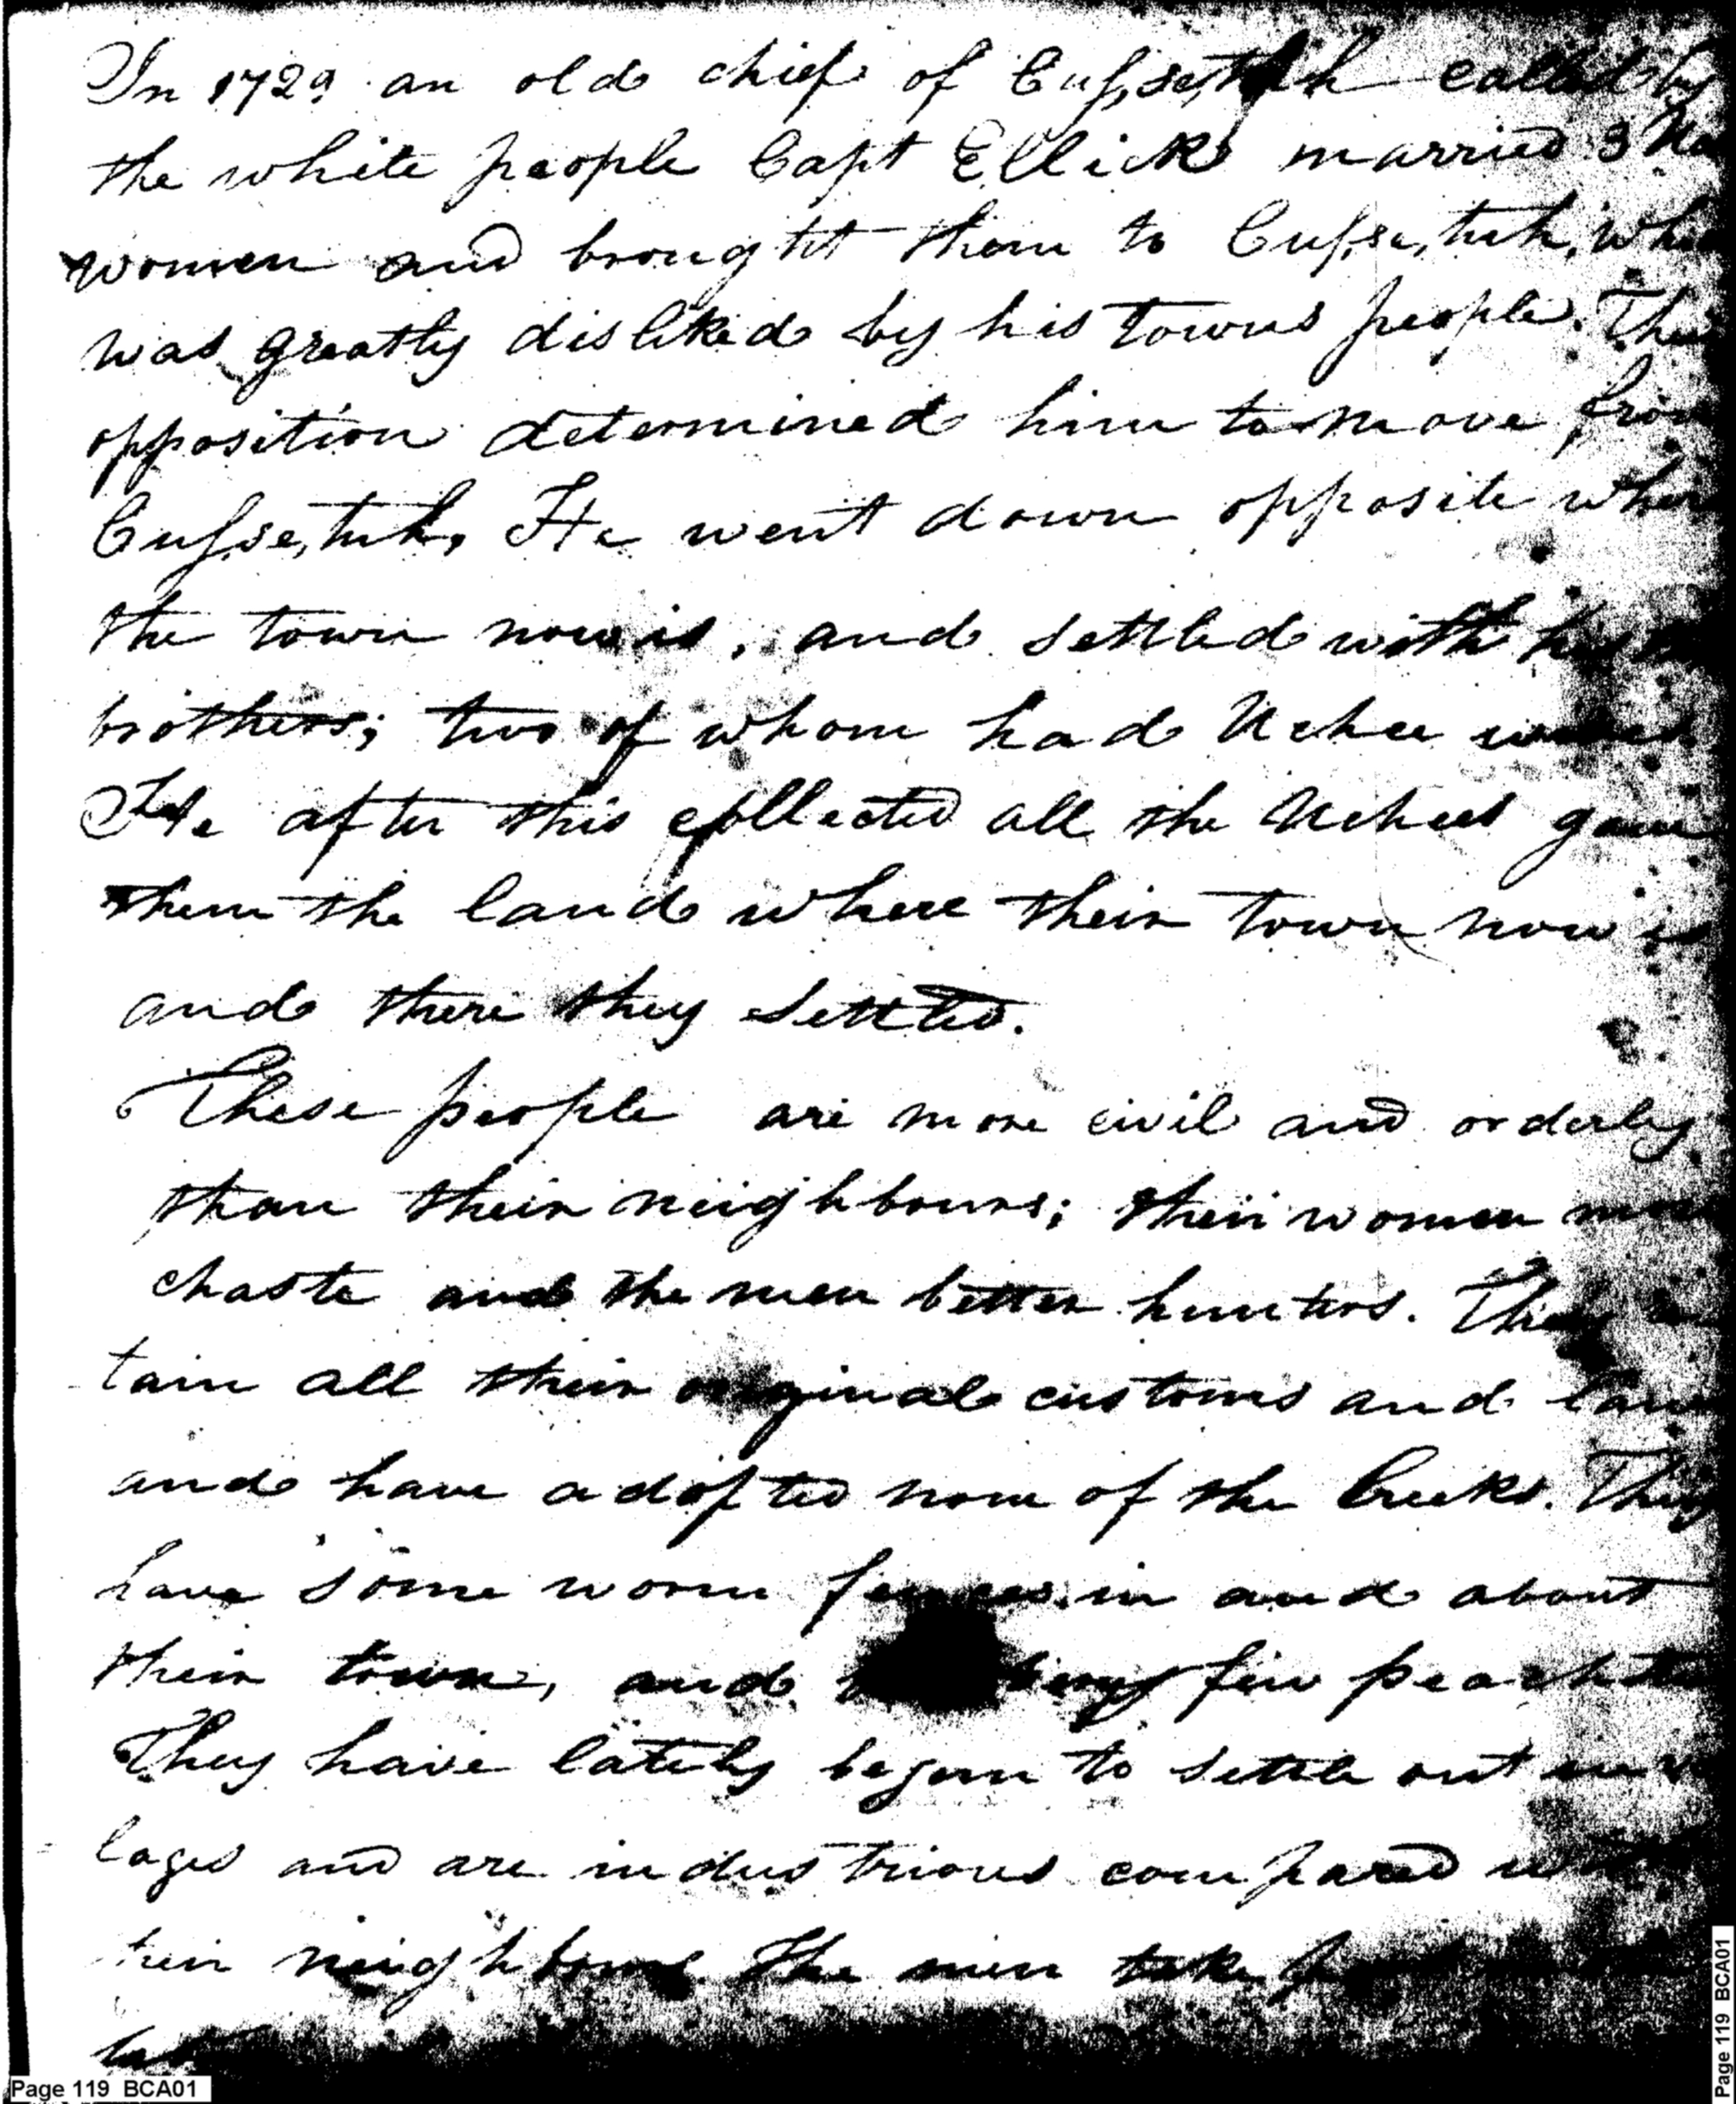 In 1729 an old chief of Cussetuh called by
the white people Capt Ellick married 3
women and brought them to Cusse,tuh, who
was greatly disliked by his towns people. The
opposition determined him to move from
Cusse,tuh, He went down opposite where
the town now is, and settled with his
brothers; two of whom had Uchee
He after this collected all the Uchees gave
them the land where their town now is
and there they settled.
These people are more civil and orderly
than their neighbours; their women more
chaste and the men better hunters. They
tain all their original customs and laws
and have adopted none of the Creeks. They
have some worm fences in and about
their town, and very few peach
They have lately begun to settle out in
lages and are industrious compared with
their neighbours. The men take
Page 119 BCA01
Page 119 BCA01